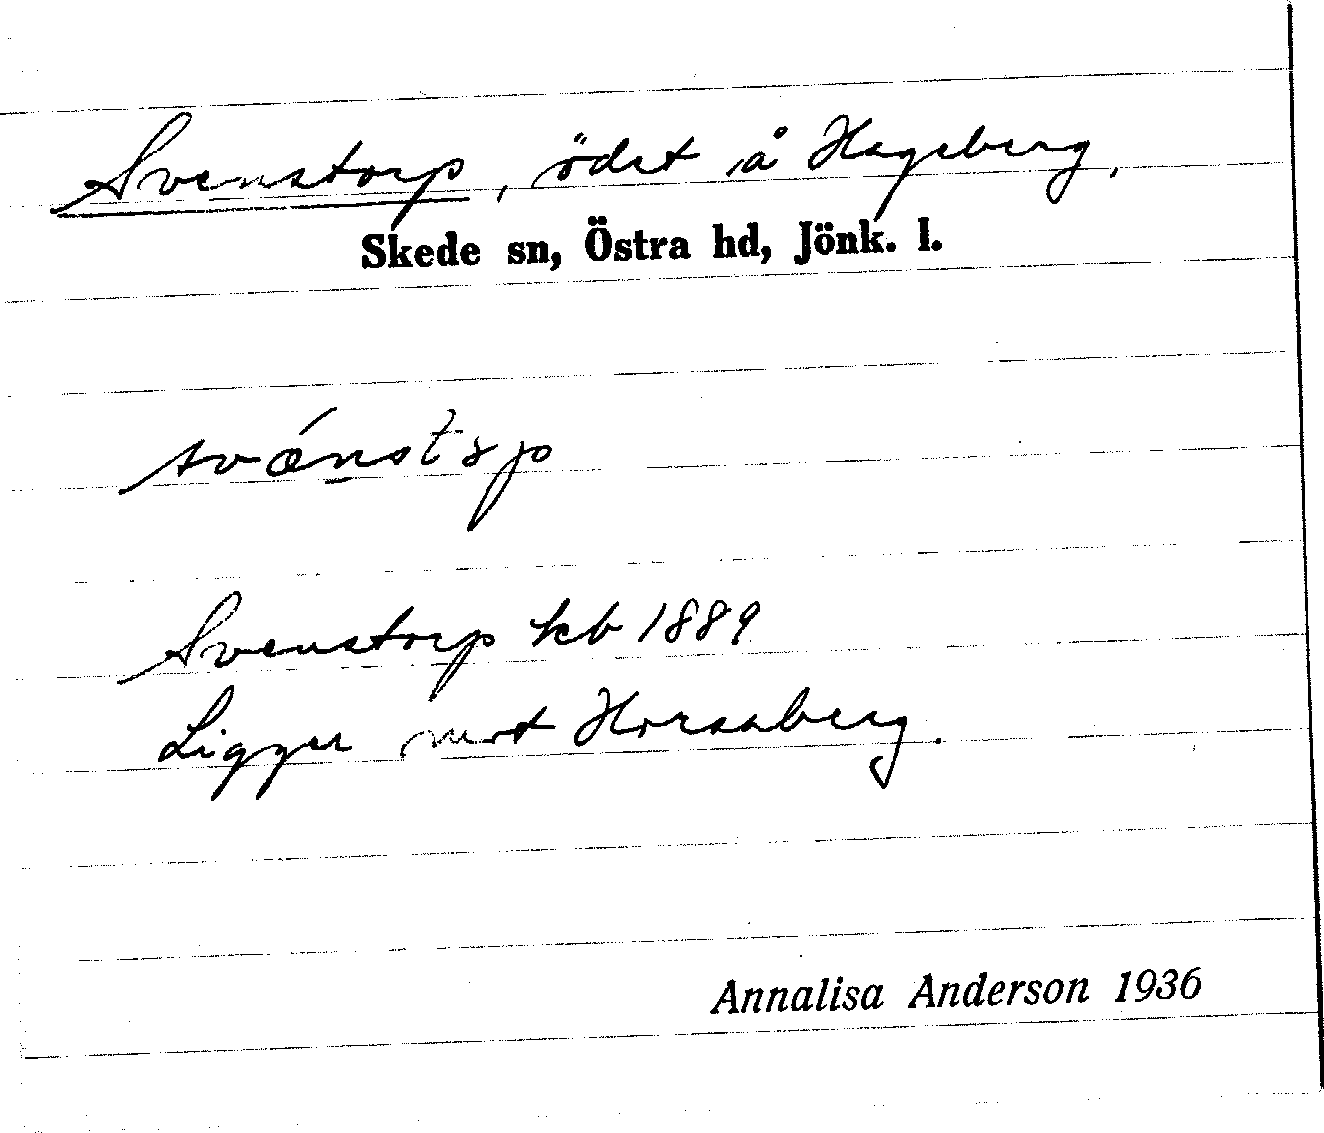 Svenstorp, ödet å Hageberg,
Skede sn, Östra hd, Jönk. l.
svǽnstɔp
Svenstorp kb 1889
Ligger mot Horsaberg.
Annalisa Anderson 1936